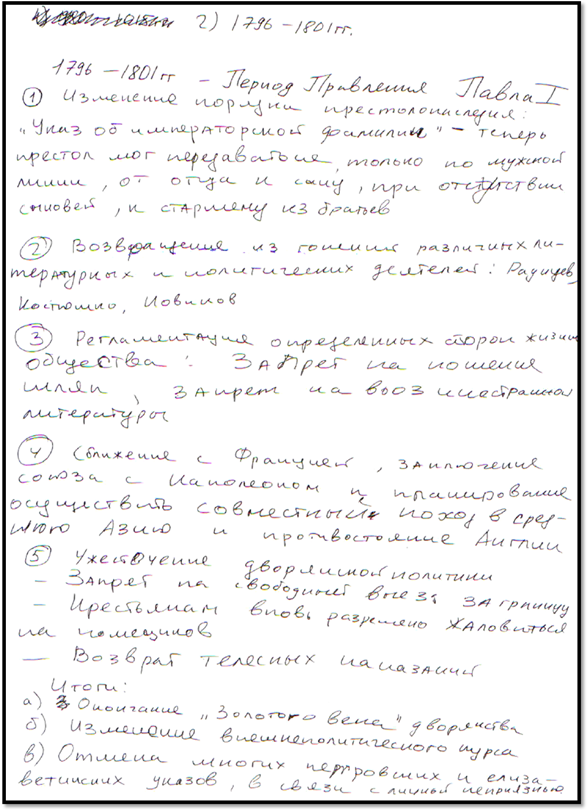 2) 1796 – 1801 гг.
1796 – 1801 гг – Период Правления Павла I
① Изменение порядка престолонаследия:
„Указ об императорской фамилии" – теперь
престол мог передаваться только по мужской
линии, от отца к сыну, при отсутствии
сыновей, к старшему из братьев
② Возвращение из гонения различных ли-
тературных и политических деятелей: Радищев,
Костюшко, Новиков
③ Регламентация определенных сторон жизни
общества: Запрет на ношение
шляп, запрет на ввоз иностранной
литературы
④ Сближение с Францией, заключение
союза с Наполеоном и планирование
осуществить совместный поход в сред-
нюю Азию и противостояние Англии
⑤ Ужесточение дворянской политики
– Запрет на свободный выезд за границу
– Крестьянам вновь разрешено жаловаться
на помещиков
— Возврат телесных наказаний
Итоги:
а) Окончание „Золотого века" дворянства
б) Изменение внешнеполитического курса
в) Отмена многих петровших и елиза-
ветинских указов, в связи с личной неприязнью